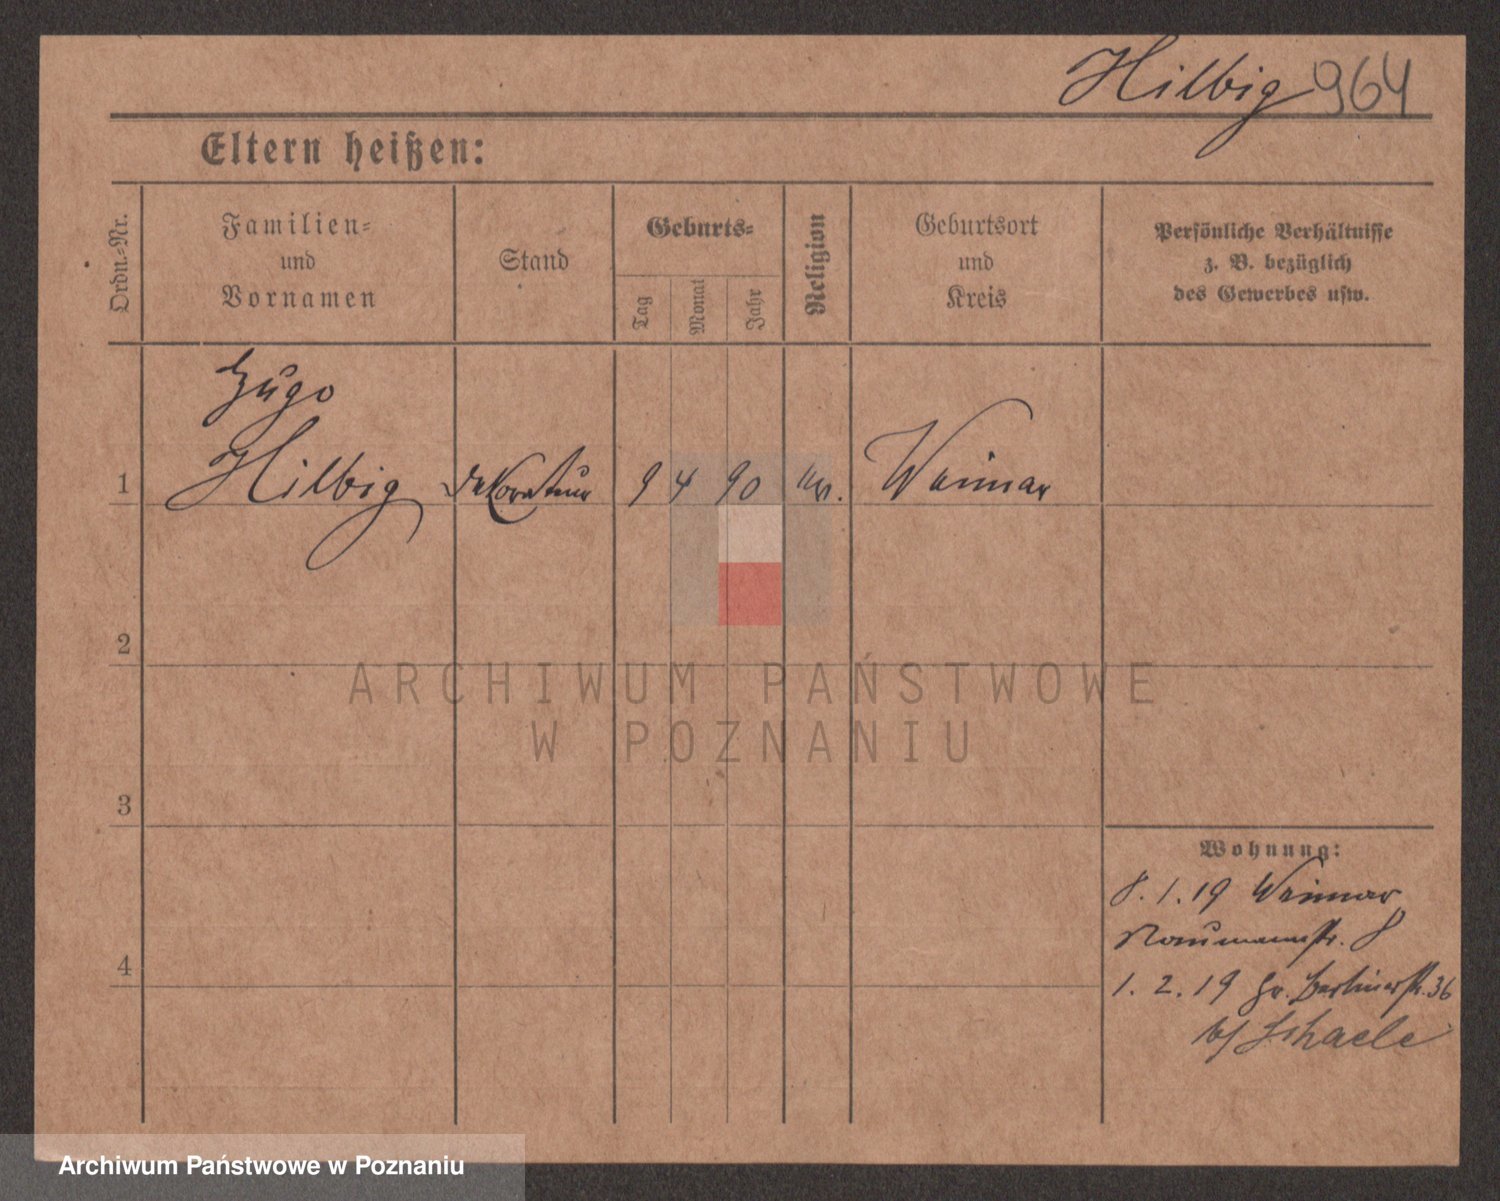 Hilbig 964
Eltern heißen:
Ordn.-Nr.
Familien-
und
Vornamen
Stand
Geburts-
Tag
Monat
Jahr
Religion
Geburtsort
und
Kreis
Persönliche Verhältnisse
z. B. bezüglich
des Gewerbes usw.
Hugo
1 Hilbig Dekorateur 9 4 90 Weimar
2
3
4
Wohnung:
8. 1. 19 Weimar
Naumannstr. 8
1. 2. 19 Gr. Berlinerstr. 36
b/
ARCHIWUM PAŃSTWOWE
W POZNANIU
Archiwum Państwowe w Poznaniu